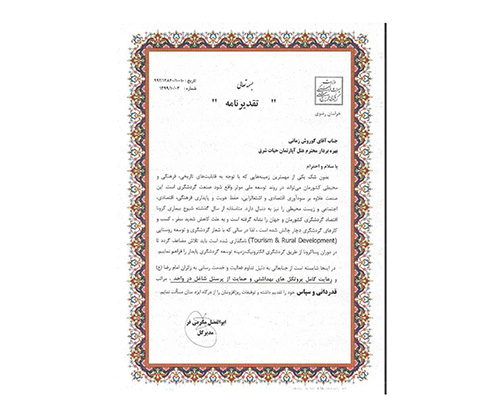 بسمه تعالی
تاریخ:
شماره: ۱۳۹۹/۱۰/۰۳
خراسان رضوی
" تقدیرنامه "
جناب آقای کوروش زمانی
بهره بردار محترم هتل آپارتمان حیات شرق
با سلام و احترام
بدون شک یکی از مهمترین زمینه‌هایی که با توجه به قابلیت‌های تاریخی، فرهنگی و
محیطی کشورمان می‌تواند در روند توسعه ملی موثر واقع شود صنعت گردشگری است. این
صنعت علاوه بر سودآوری اقتصادی و اشتغالزایی، حفظ هویت و پایداری فرهنگی، اقتصادی،
اجتماعی و زیست محیطی را نیز به دنبال دارد. متاسفانه از سال گذشته شیوع بیماری کرونا
اقتصاد گردشگری کشورمان و جهان را نشانه گرفته است و به علت کاهش شدید سفر، کسب و
کارهای گردشگری دچار چالش شده است، لذا در سالی که با شعار گردشگری و توسعه روستایی
(Tourism & Rural Development) نامگذاری شده است باید تلاش مضاعف گردد تا
در دوران پساکرونا از طریق گردشگری الکترونیک زمینه توسعه گردشگری پایدار را فراهم نماییم.
در اینجا شایسته است از جنابعالی به دلیل تداوم فعالیت و خدمت رسانی به زائران امام رضا (ع)
و رعایت کامل پروتکل های بهداشتی و حمایت از پرسنل شاغل در واحد، مراتب
قدردانی و سپاس خود را تقدیم داشته و توفیقات روزافزونتان را از درگاه ایزد منان مسألت نمایم.
ابوالفضل مکرمی فر
مدیرکل